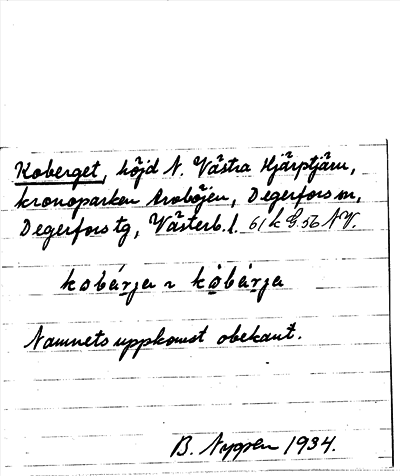 Koberget, höjd N. Västra Hjärptjärn,
kronoparken Arvböjen, Degerfors sn,
Degerfors tg, Västerb. l. 61 k G. 56 NV.
kobárja ~ kȯbárja
Namnets uppkomst obekant.
B. Nygren 1934.